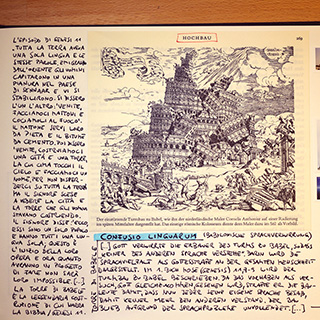 L'EPISODIO DI GENESI 11
TUTTA LA TERRA AVEVA
UNA SOLA LINGUA E LE
STESSE PAROLE. EMIGRANDO
DALL'ORIENTE GLI UOMINI
CAPITARONO IN UNA
PIANURA NEL PAESE
DI SENNAAR E VI SI
STABILIRONO. SI DISSERO
L'UN L'ALTRO: VENITE,
FACCIAMOCI MATTONI E
COCIAMOLI AL FUOCO.
IL MATTONE SERVÌ LORO
DA PIETRA E IL BITUME
DA CEMENTO. POI DISSERO:
VENITE, COSTRUIAMOCI
UNA CITTÀ E UNA TORRE,
LA CUI CIMA TOCCHI IL
CIELO E FACCIAMOCI UN
NOME, PER NON DISPER-
DERCI SU TUTTA LA TERRA
MA IL SIGNORE SCESE
A VEDERE LA CITTÀ E
LA TORRE CHE GLI UOMINI
STAVANO COSTRUENDO.
IL SIGNORE DISSE: ECCO,
ESSI SONO UN SOLO POPOLO
E HANNO TUTTI UNA LIN-
GUA SOLA; QUESTO È
L'INIZIO DELLA LORO
OPERA E ORA QUANTO
AVRANNO IN PROGETTO
DI FARE NON SARÀ
LORO IMPOSSIBILE. [...]
LA TORRE DI BABELE
È LA LEGGENDARIA COST-
RUZIONE DI CUI NARRA
LA BIBBIA/GENESI 11.
HOCHBAU
Der einstürzende Turmbau zu Babel, wie ihn der niederländische Maler Cornelis Anthonisz auf einer Radierung
im späten Mittelalter dargestellt hat. Das einzige römische Kolosseum diente dem Maler dazu im Stil als Vorbild.
CONFUSIO LINGUARUM (BABYLONISCHE SPRACHVERWIRRUNG)
[...] GOTT VERWIRRTE DIE ERBAUER DES TURMS ZU BABEL, SODASS
KEINER DES ANDEREN SPRACHE VERSTEHT. DARIN WIRD DIE
SPRACHVIELFALT ALS GOTTESSTRAFE AN DER GESAMTEN MENSCHHEIT
DARGESTELLT. IM 1. BUCH MOSE (GENESIS) 11,1-9 WIRD DER
TURMBAU ZU BABEL BESCHRIEBEN. DA DAS VORHABEN ALS VER-
SUCH, GOTT GLEICHZUKOMMEN, GESEHEN WIRD, STRAFTE ER DIE BABY-